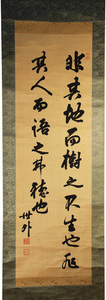 非其地而樹之不生也非
其人而語之弗聴也